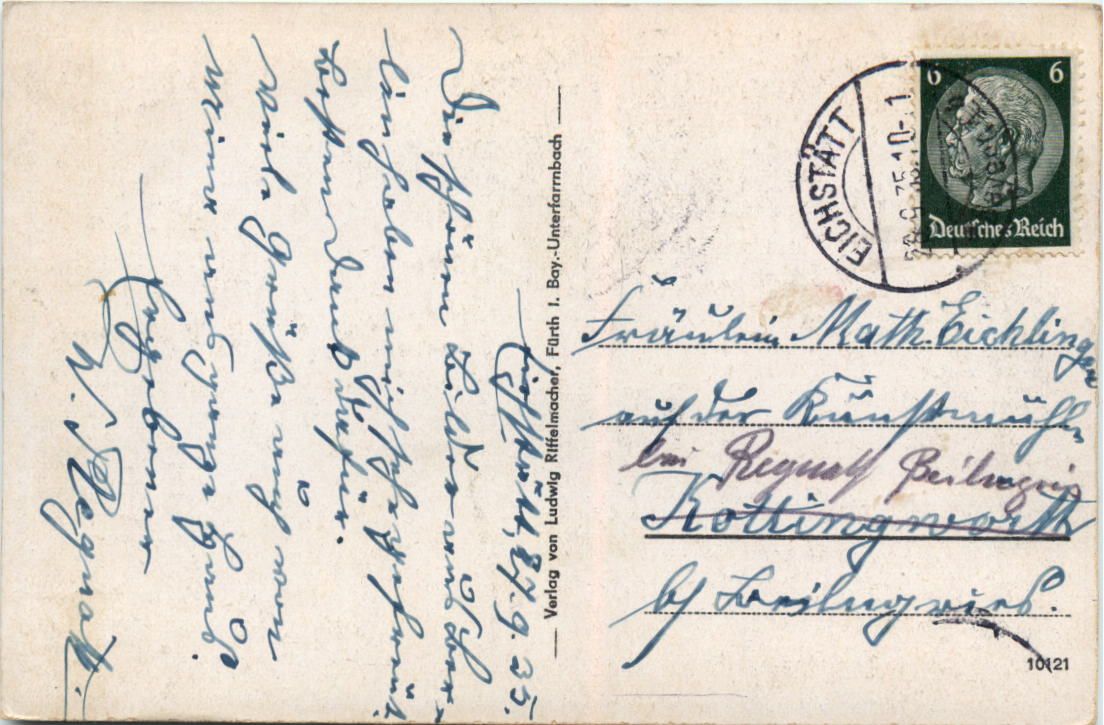 Eichstätt, 27.9.35.
Die schönen Bilder aus Ber-
lin haben mich sehr gefreut.
Besten Dank dafür.
Viele Grüße auch von
ganze Haus.
Ergebener
Regnath.
Verlag von Ludwig Riffelmacher, Fürth i. Bay.-Unterfarrnbach
6 6
Deutsches Reich
EICHSTÄTT
Fräulein Math. Eichlinger
auf der Kunstmühle
bei Regnath Beilngries
Kottingwörth
b/ Beilngries.
10121